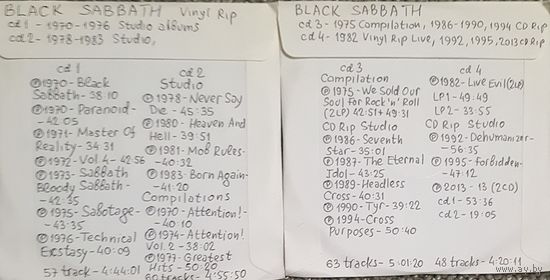 BLACK SABBATH Vinyl Rip
cd1 - 1970-1976 Studio albums
cd2 - 1978-1983 Studio,
cd1
℗1970-Black
Sabbath-38:10
℗1970-Paranoid-
-42:05
℗1971-Master Of
Reality-34:31
℗1972-Vol 4-42:56
℗1973-Sabbath
Bloody Sabbath-
-42:35
℗1975-Sabotage-
-43:35
℗1976-Technical
Ecstasy-40:09
57 track-4:44:01
cd2
Studio
℗1978-Never Say
Die-45:35
℗1980-Heaven And
Hell-39:51
℗1981-Mob Rules-
-40:32
℗1983-Born Again-
-41:20
Compilations
℗1970-Attention!-
-40:10
℗1974-Attention!
Vol. 2-38:02
℗1977-Greatest
Hits-50:20
60 tracks-4:55:50
BLACK SABBATH
cd3-1975 Compilation, 1986-1990, 1994 CD Rip
cd4-1982 Vinyl Rip Live, 1992, 1995, 2013 CD Rip
cd3
Compilation
℗1975-We Sold Our
Soul For Rock'n'Roll
(2LP) 42:51+49:31
CD Rip Studio
℗1986-Seventh
Star-35:01
℗1987-The Eternal
Idol-43:25
℗1989-Headless
Cross-40:31
℗1990-Tyr-39:22
℗1994-Cross
Purposes-50:40
63 tracks-5:01:20
cd4
℗1982-Live Evil(2LP)
LP1-49:49
LP2-33:55
CD Rip Studio
℗1992-Dehumanizer-
-56:35
℗1995-Forbidden-
-47:12
℗2013-13 (2CD)
cd1-53:36
cd2-19:05
48 tracks-4:20:11
www.ay.by